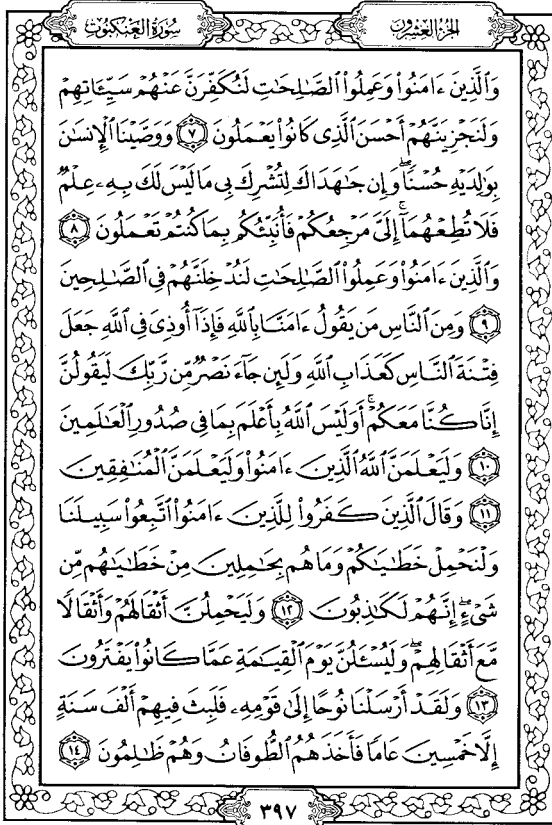 سُورَةُ العَنكَبُوتِ الجُزءُ العِشْرُونَ
وَٱلَّذِينَ ءَامَنُوا۟ وَعَمِلُوا۟ ٱلصَّٰلِحَٰتِ لَنُكَفِّرَنَّ عَنْهُمْ سَيِّـَٔاتِهِمْ
وَلَنَجْزِيَنَّهُمْ أَحْسَنَ ٱلَّذِى كَانُوا۟ يَعْمَلُونَ ٧ وَوَصَّيْنَا ٱلْإِنسَٰنَ
بِوَٰلِدَيْهِ حُسْنًا ۖ وَإِن جَٰهَدَاكَ لِتُشْرِكَ بِى مَا لَيْسَ لَكَ بِهِۦ عِلْمٌ
فَلَا تُطِعْهُمَآ ۚ إِلَىَّ مَرْجِعُكُمْ فَأُنَبِّئُكُم بِمَا كُنتُمْ تَعْمَلُونَ ٨
وَٱلَّذِينَ ءَامَنُوا۟ وَعَمِلُوا۟ ٱلصَّٰلِحَٰتِ لَنُدْخِلَنَّهُمْ فِى ٱلصَّٰلِحِينَ
٩ وَمِنَ ٱلنَّاسِ مَن يَقُولُ ءَامَنَّا بِٱللَّهِ فَإِذَآ أُوذِىَ فِى ٱللَّهِ جَعَلَ
فِتْنَةَ ٱلنَّاسِ كَعَذَابِ ٱللَّهِ وَلَئِن جَآءَ نَصْرٌ مِّن رَّبِّكَ لَيَقُولُنَّ
إِنَّا كُنَّا مَعَكُمْ ۚ أَوَلَيْسَ ٱللَّهُ بِأَعْلَمَ بِمَا فِى صُدُورِ ٱلْعَٰلَمِينَ
١٠ وَلَيَعْلَمَنَّ ٱللَّهُ ٱلَّذِينَ ءَامَنُوا۟ وَلَيَعْلَمَنَّ ٱلْمُنَٰفِقِينَ
١١ وَقَالَ ٱلَّذِينَ كَفَرُوا۟ لِلَّذِينَ ءَامَنُوا۟ ٱتَّبِعُوا۟ سَبِيلَنَا
وَلْنَحْمِلْ خَطَٰيَٰكُمْ وَمَا هُم بِحَٰمِلِينَ مِنْ خَطَٰيَٰهُم مِّن
شَىْءٍ ۖ إِنَّهُمْ لَكَٰذِبُونَ ١٢ وَلَيَحْمِلُنَّ أَثْقَالَهُمْ وَأَثْقَالًا
مَّعَ أَثْقَالِهِمْ ۖ وَلَيُسْـَٔلُنَّ يَوْمَ ٱلْقِيَٰمَةِ عَمَّا كَانُوا۟ يَفْتَرُونَ
١٣ وَلَقَدْ أَرْسَلْنَا نُوحًا إِلَىٰ قَوْمِهِۦ فَلَبِثَ فِيهِمْ أَلْفَ سَنَةٍ
إِلَّا خَمْسِينَ عَامًا فَأَخَذَهُمُ ٱلطُّوفَانُ وَهُمْ ظَٰلِمُونَ ١٤
٣٩٧